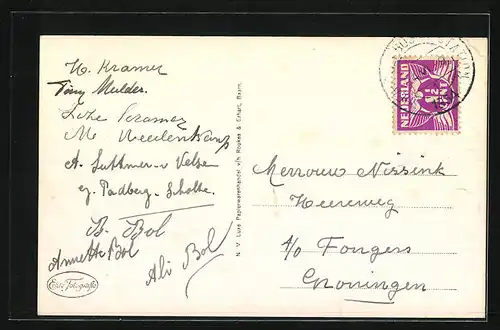 H. Kramer
Tiny Mulder.
Kramer
A. Luttmer-v Velse
g. Padberg-Scholte.
B. Bol
Annette Bol
Ali Bol
Echte Fotografie
N. V. Luxe Papierwarenhandel v/h Roukes & Erhart, Baarn.
STATION
NEDERLAND
1½
CENT
Merrouw Nissink
Heereweg
a/o Fongers
Groningen